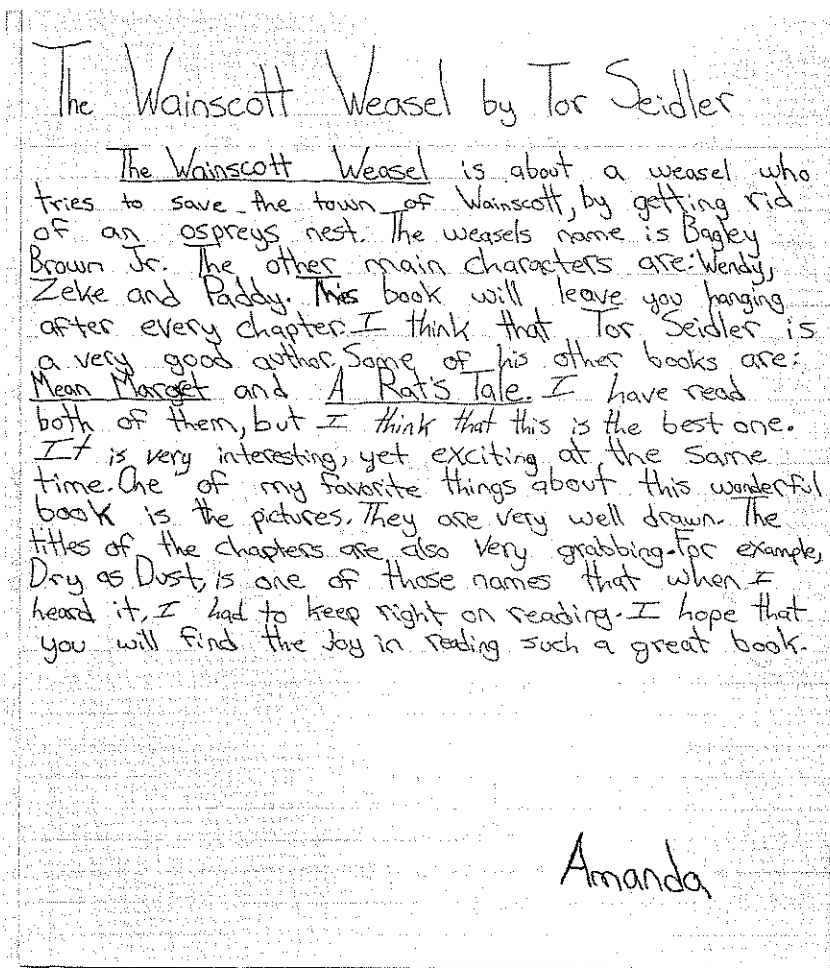 The Wainscott Weasel by Tor Seidler
The Wainscott Weasel is about a weasel who
tries to save the town of Wainscott, by getting rid
of an ospreys nest. The weasels name is Bagley
Brown Jr. The other main characters are: Wendy,
Zeke and Paddy. This book will leave you hanging
after every chapter. I think that Tor Seidler is
a very good author. Some of his other books are:
Mean Marget and A Rat's Tale. I have read
both of them, but I think that this is the best one.
It is very interesting, yet exciting at the same
time. One of my favorite things about this wonderful
book is the pictures. They are very well drawn. The
titles of the chapters are also very grabbing. For example,
Dry as Dust, is one of those names that when I
heard it, I had to keep right on reading. I hope that
you will find the Joy in reading such a great book.
Amanda